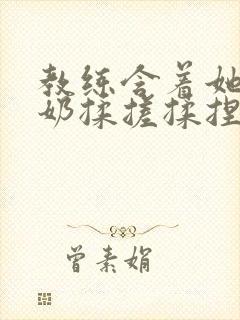 教练含着她
奶揉搓揉捏
曾素娟